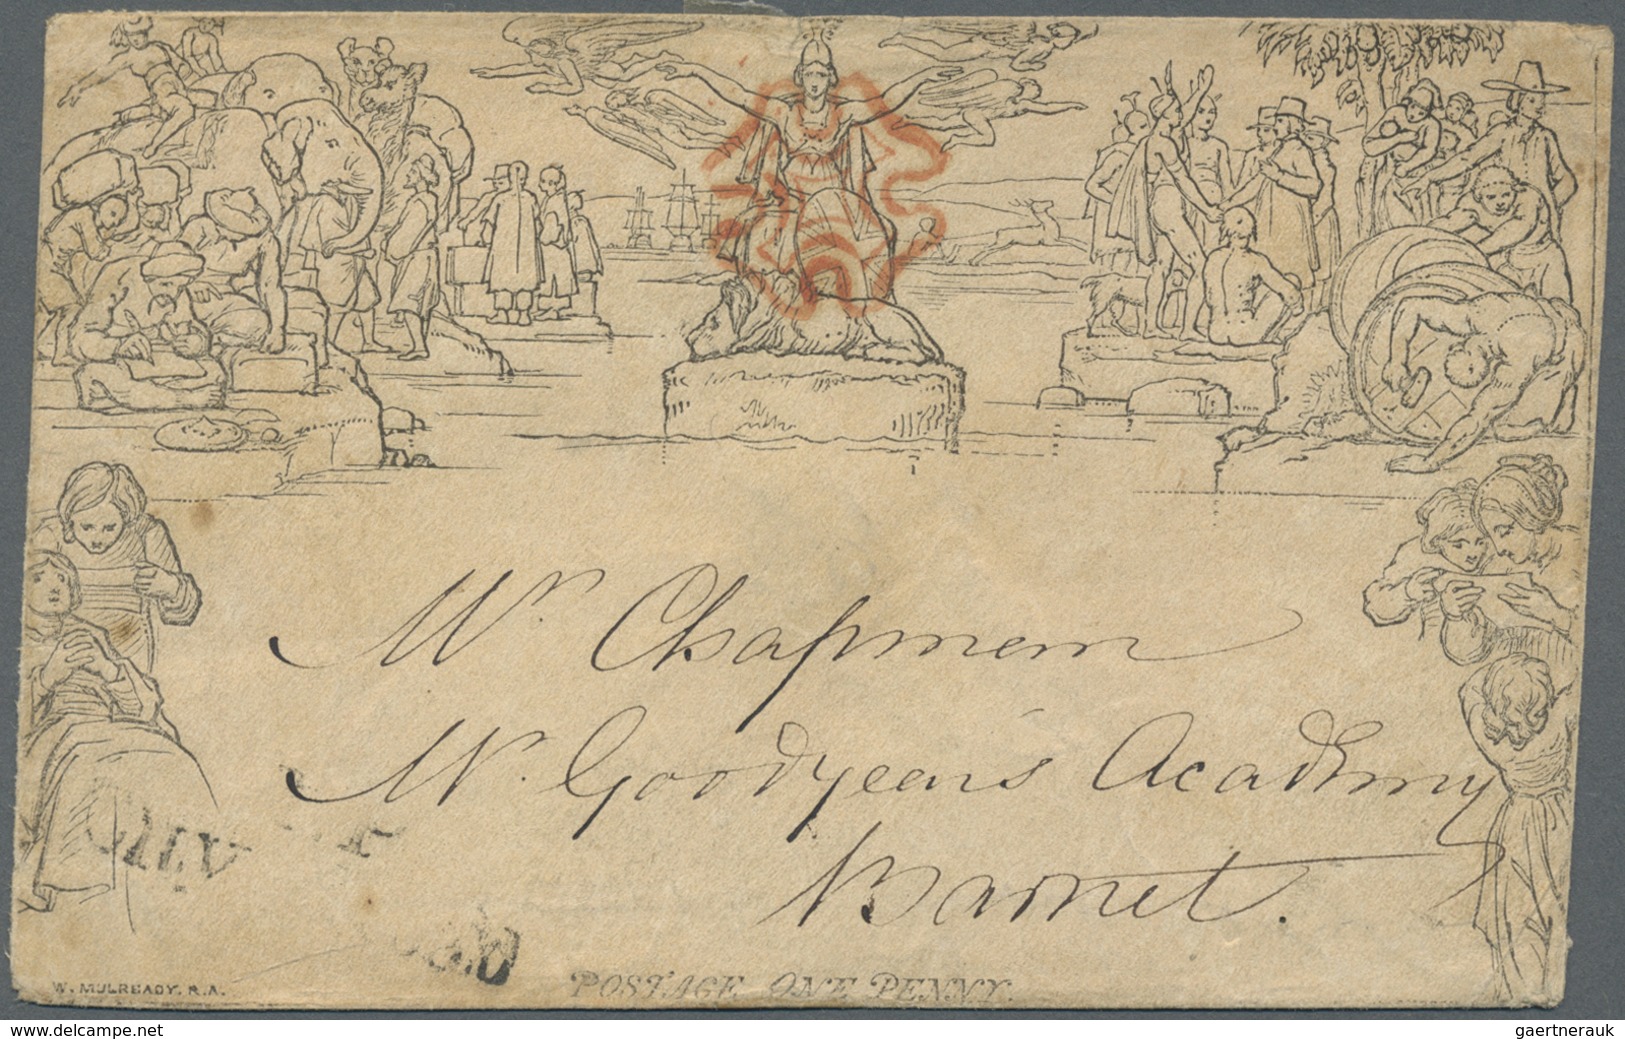 Mr. Chapmem
Mr. Goodyear's Academy
Barnet.
W. MULREADY. R.A.
POSTAGE ONE PENNY.
www.delcampe.net
gaertnerauk